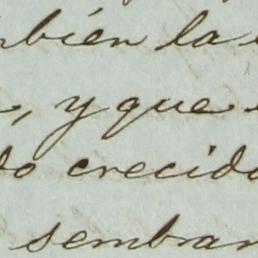 mbién la
, y que
do crecido
sembrar